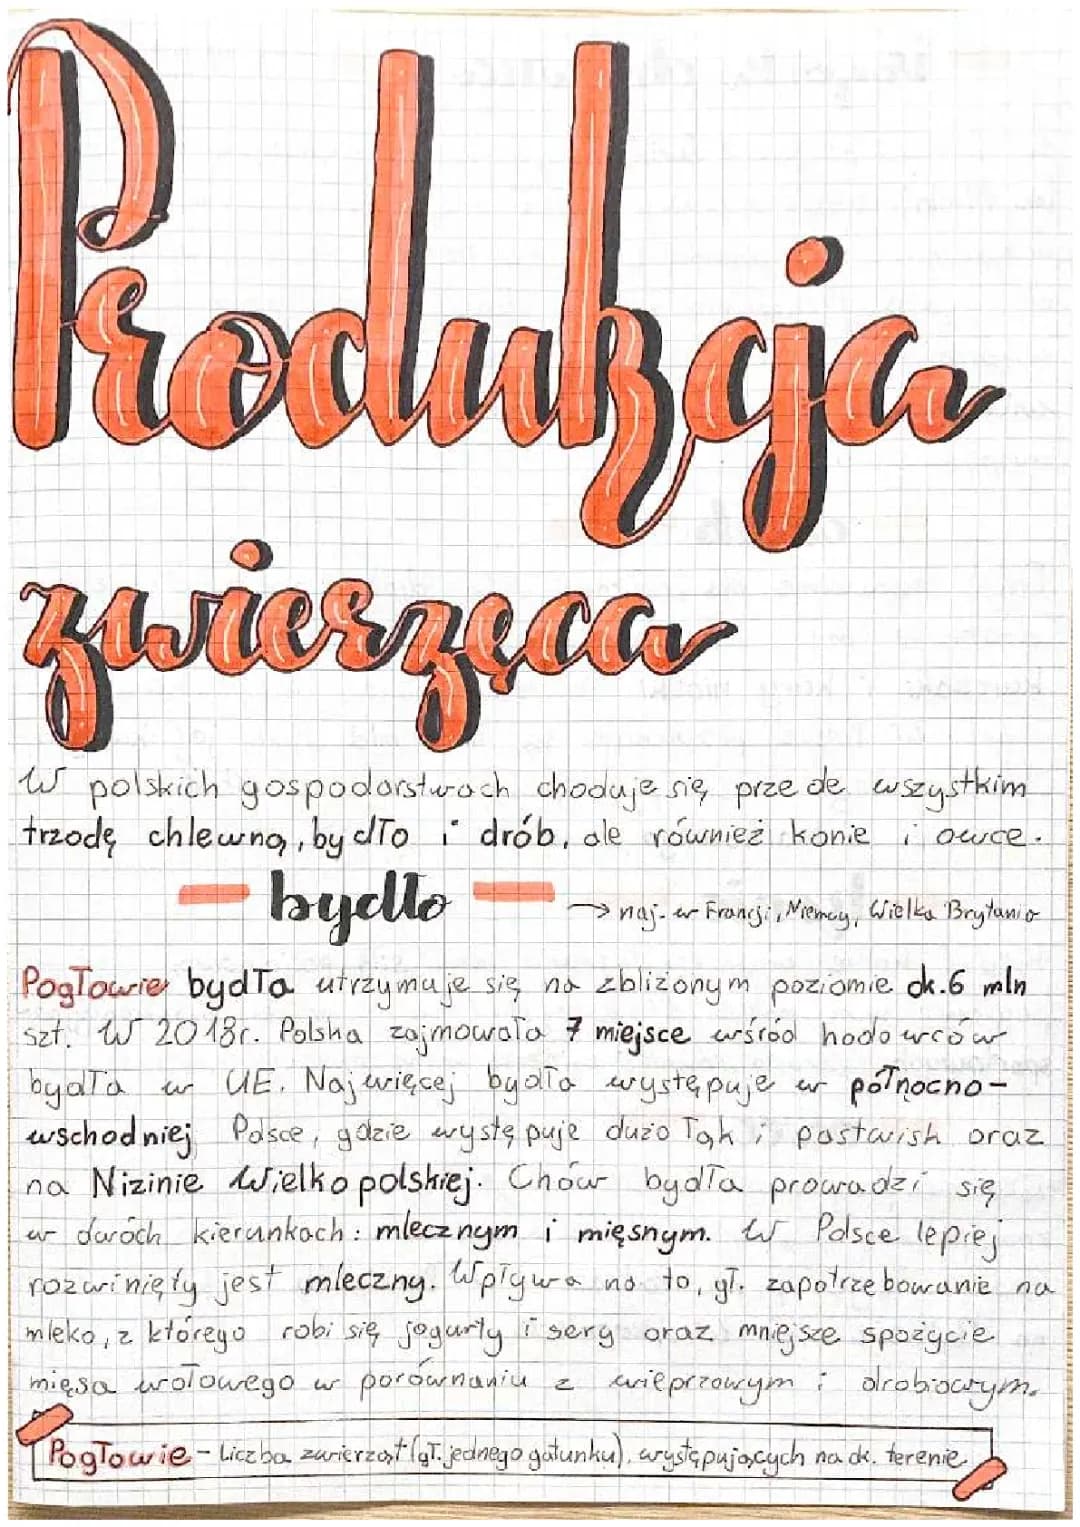 Produkcja
zwierzęca
W polskich gospodarstwach choduje się przede wszystkim
trzodę chlewną, bydło i drób, ale również konie i owce.
bydło
→ naj. w Francji, Niemcy, Wielka Brytania
Pogłowie bydła utrzymuje się na zbliżonym poziomie ok. 6 mln
szt. W 2018r. Polska zajmowała 7 miejsce wśród hodowców
bydła w UE. Najwięcej bydła występuje w północno-
wschodniej Polsce, gdzie występuje dużo łąk i pastwisk oraz
na Nizinie Wielkopolskiej. Chów bydła prowadzi się
w dwóch kierunkach: mlecznym i mięsnym. W Polsce lepiej
rozwinięty jest mleczny. Wpływa na to, gł. zapotrzebowanie na
mleko, z którego robi się jogurty i sery oraz mniejsze spożycie
mięsa wołowego w porównaniu z wieprzowym i drobiowym.
Pogłowie - Liczba zwierząt (gł. jednego gatunku), występujących na ok. terenie